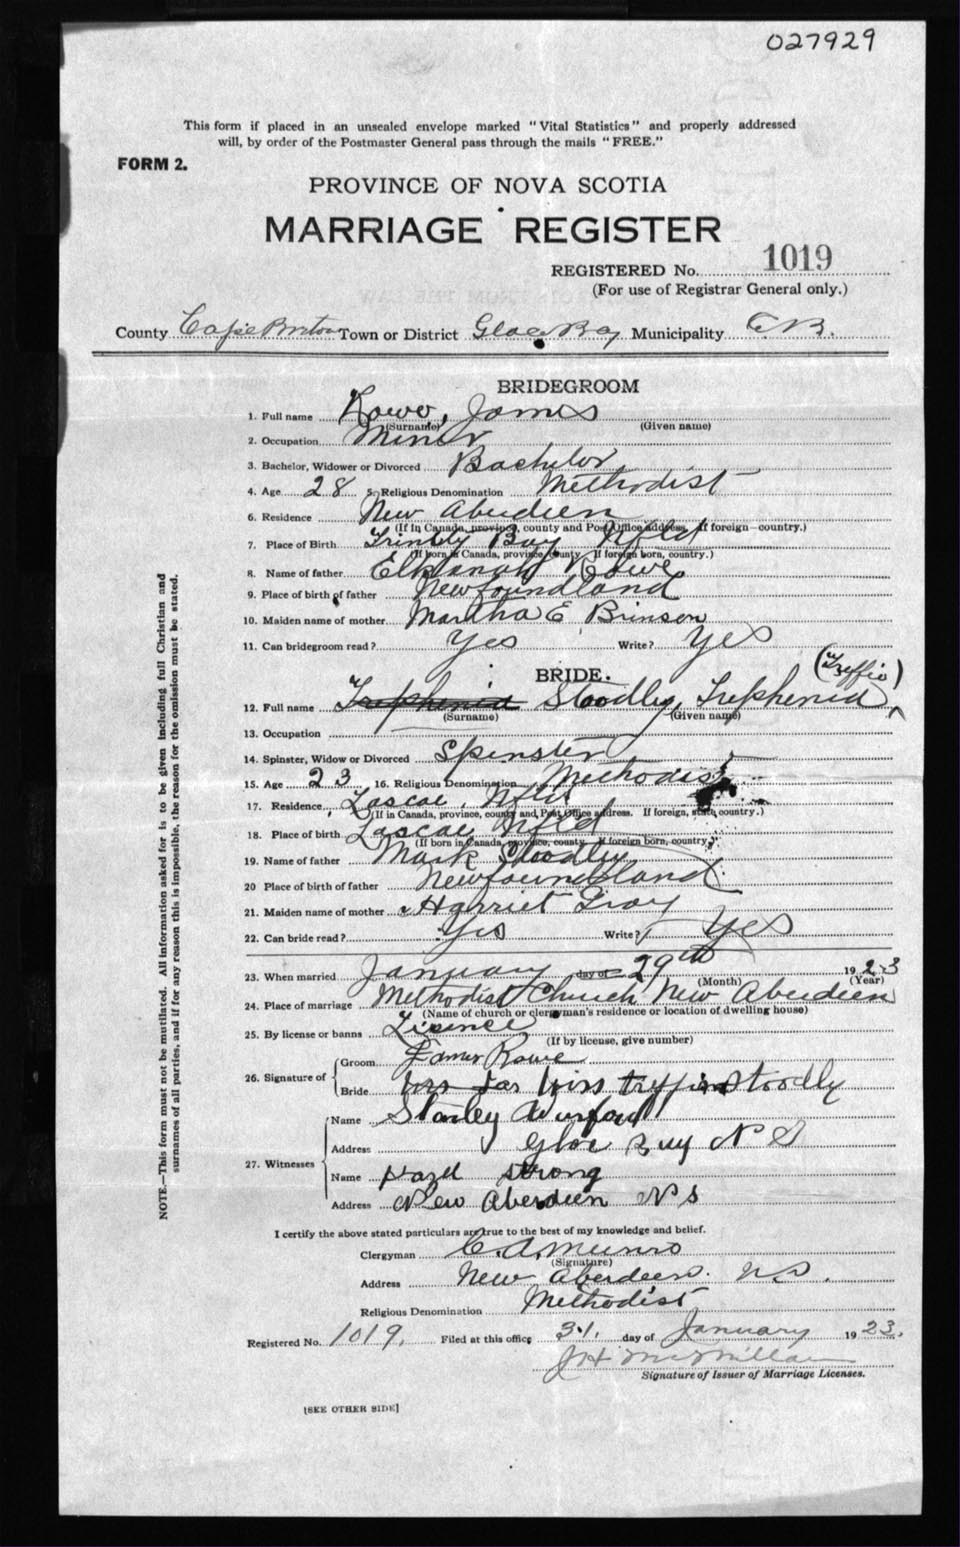 027929
This form if placed in an unsealed envelope marked "Vital Statistics" and properly addressed
will, by order of the Postmaster General pass through the mails "FREE."
FORM 2.
PROVINCE OF NOVA SCOTIA
MARRIAGE REGISTER
REGISTERED No. 1019
(For use of Registrar General only.)
County Cape Breton Town or District Glace Bay Municipality C.B.
BRIDEGROOM
1. Full name Rowe, James
(Surname) (Given name)
2. Occupation Miner
3. Bachelor, Widower or Divorced Bachelor
4. Age 28 5. Religious Denomination Methodist
6. Residence New Aberdeen
(If in Canada, province, county and Post Office address. If foreign—country.)
7. Place of Birth Trinity Bay Nfld
(If born in Canada, province, county. If foreign born, country.)
8. Name of father Elkanah Rowe
9. Place of birth of father Newfoundland
10. Maiden name of mother Martha E Brinson
11. Can bridegroom read? Yes Write? Yes
BRIDE.
(Treffie)
12. Full name Trephenia Stoodly, Trephenia
(Surname) (Given name)
13. Occupation
14. Spinster, Widow or Divorced Spinster
15. Age 23 16. Religious Denomination Methodist
17. Residence, Lascae, Nfld
(If in Canada, province, county and Post Office address. If foreign, state, country.)
18. Place of birth Lascae Nfld
(If born in Canada, province, county. If foreign born, country.)
19. Name of father Mark Stoodley
20 Place of birth of father Newfoundland
21. Maiden name of mother Harriet Gray
22. Can bride read? Yes Write? Yes
23. When married January day of 29th 1923
(Month) (Year)
24. Place of marriage Methodist Church, New Aberdeen
(Name of church or clergyman's residence or location of dwelling house)
25. By license or banns Lisence
(If by license, give number)
26. Signature of
Groom James Rowe
Bride Miss Stoodly
27. Witnesses
Name Stanley
Address Glce Bay N S
Name Hazel Strong
Address New Aberdeen N S
I certify the above stated particulars are true to the best of my knowledge and belief.
Clergyman C. A. Munro
(Signature)
Address New Aberdeen. N.S.
Religious Denomination Methodist
Registered No. 1019, Filed at this office 31. day of January 1923.
J H McMillan
Signature of Issuer of Marriage Licenses.
[SEE OTHER SIDE]
NOTE.—This form must not be mutilated. All information asked for is to be given including full Christian and
surnames of all parties, and if for any reason this is impossible, the reason for the omission must be stated.